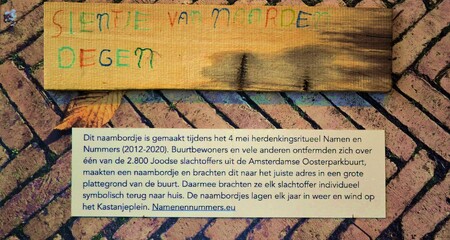 SIENTJE VAN NAARDEN
DEGEN
Dit naambordje is gemaakt tijdens het 4 mei herdenkingsritueel Namen en
Nummers (2012-2020). Buurtbewoners en vele anderen ontfermden zich over
één van de 2.800 Joodse slachtoffers uit de Amsterdamse Oosterparkbuurt,
maakten een naambordje en brachten dit naar het juiste adres in een grote
plattegrond van de buurt. Daarmee brachten ze elk slachtoffer individueel
symbolisch terug naar huis. De naambordjes lagen elk jaar in weer en wind op
het Kastanjeplein. Namenennummers.eu